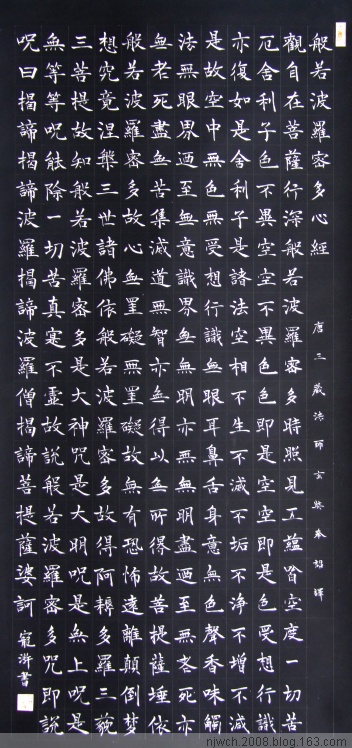 般若波羅密多心經 唐三藏法師玄奘奉詔譯
觀自在菩薩行深般若波羅密多時照見五蘊皆空度一切苦
厄舍利子色不異空空不異色色即是空空即是色受想行識
亦復如是舍利子是諸法空相不生不滅不垢不淨不增不減
是故空中無色無受想行識無眼耳鼻舌身意無色聲香味觸
法無眼界迺至無意識界無無明亦無無明盡迺至無老死亦
無老死盡無苦集滅道無智亦無得以無所得故菩提薩埵依
般若波羅密多故心無罣礙無罣礙故無有恐怖遠離顛倒夢
想究竟涅槃三世諸佛依般若波羅密多故得阿耨多羅三藐
三菩提故知般若波羅密多是大神呪是大明呪是無上呪是
無等等呪能除一切苦真寔不虛故說般若波羅密多呪即說
呪曰揭諦揭諦波羅揭諦波羅僧揭諦菩提薩婆訶 書
njwch.2008.blog.163.com